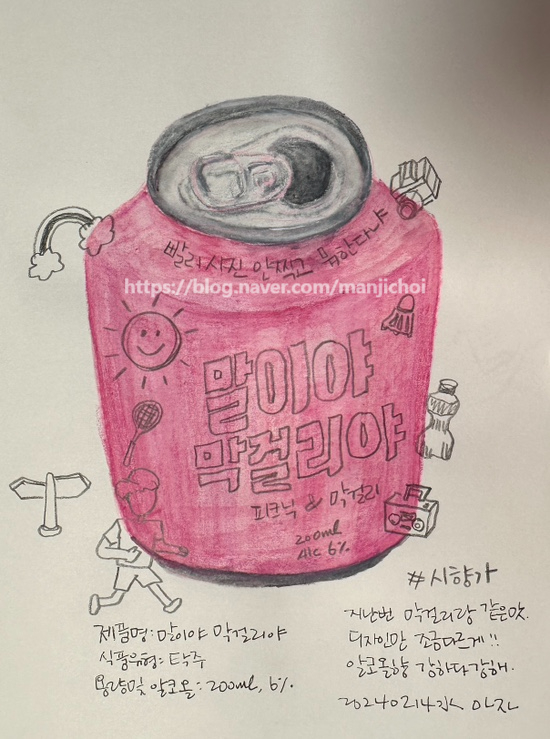 빨리 사진 안찍고 뭐한다냐
https://blog.naver.com/manjichoi
말이야
막걸리야
피크닉 & 막걸리
200ml
Alc 6%
#시향가
제품명: 말이야 막걸리야
식품유형: 탁주
용량및 알코올: 200ml, 6%
지난번 막걸리랑 같은맛.
디자인만 조금다르게!!
알코올향 강하다강해.
20240214수